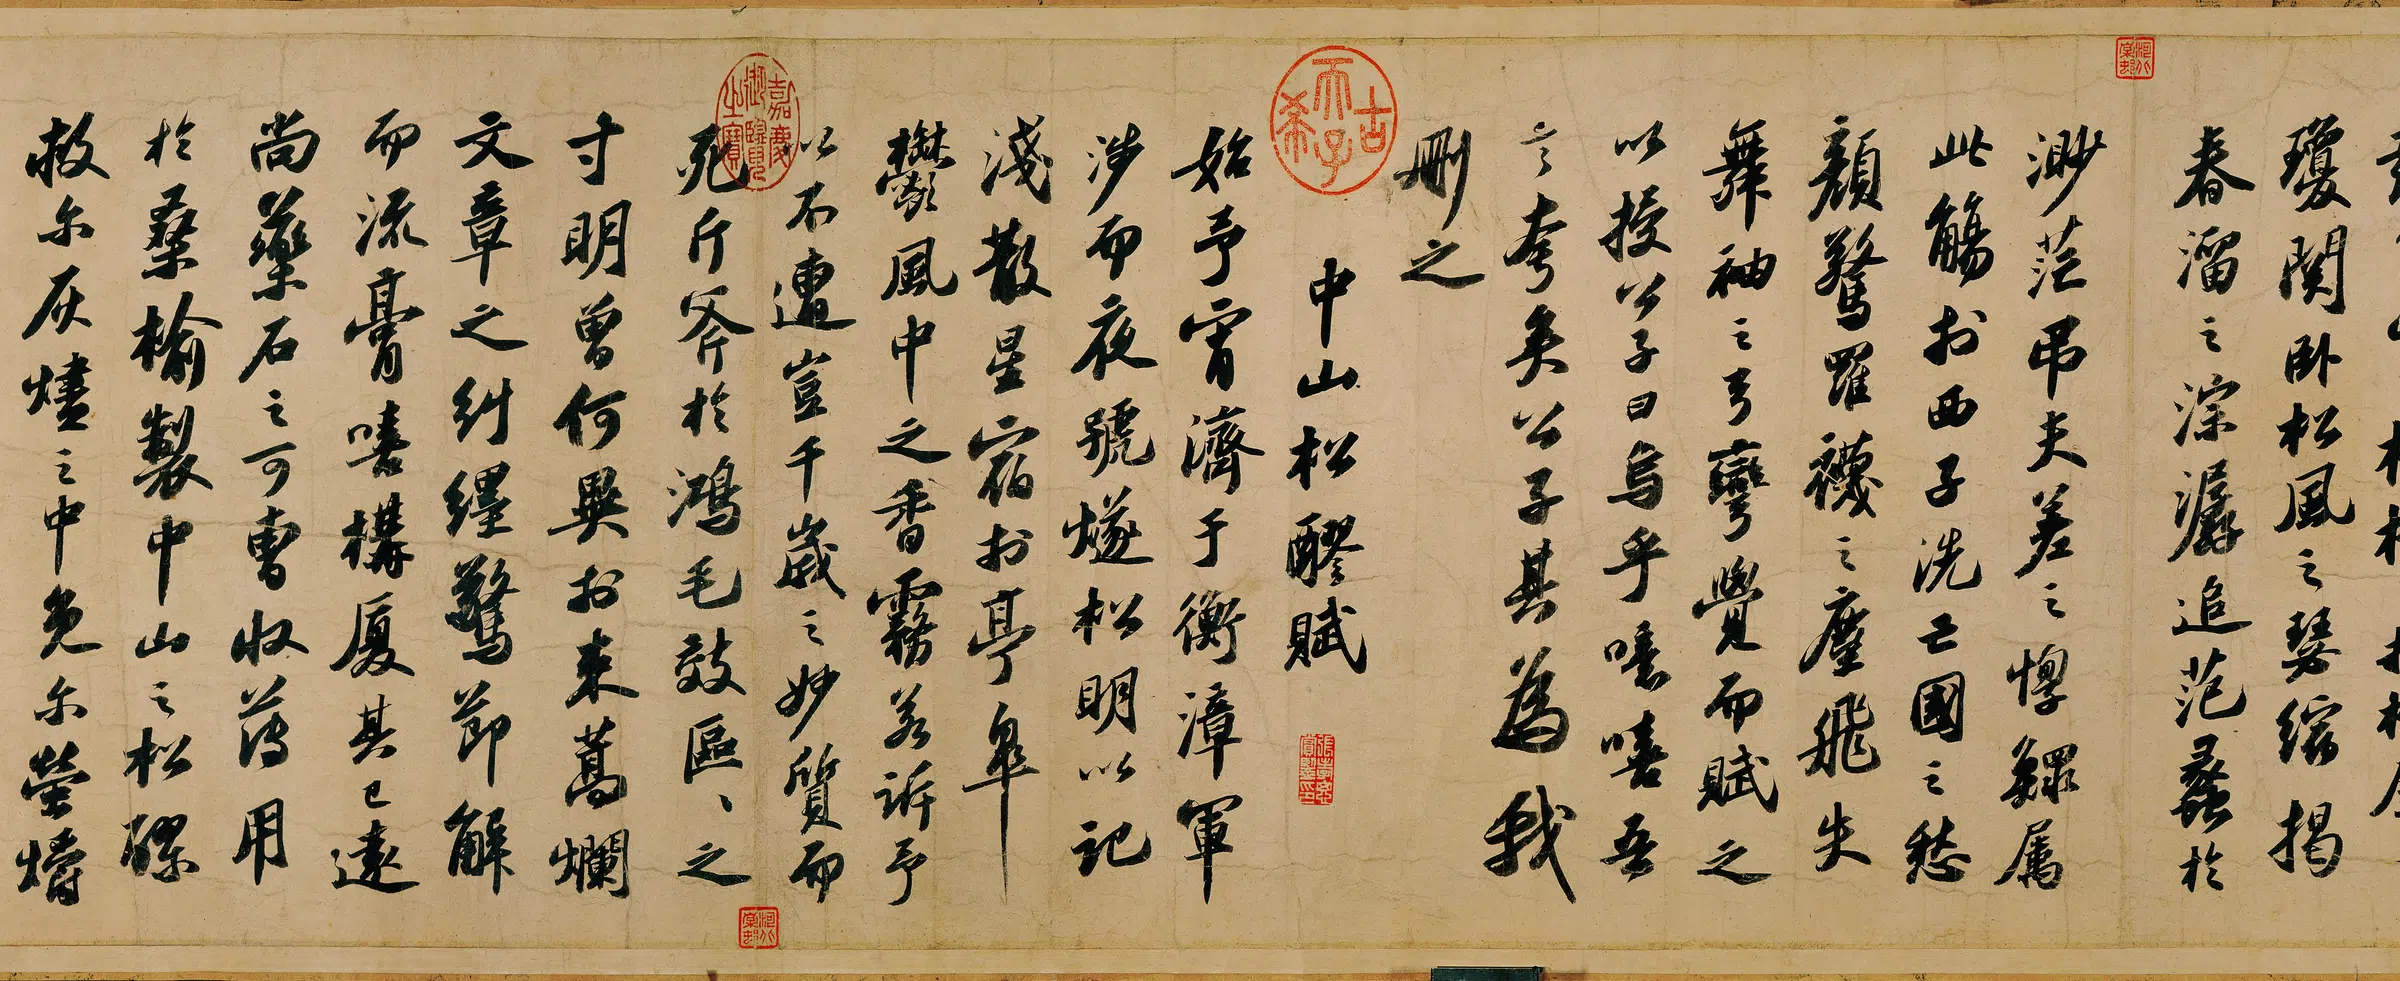 瓊關卧松風之瑟縮揭
春溜之淙潺追范蠡於
河北棠村
渺茫弔夫差之惸鰥屬
此觴於西子洗亡國之愁
顏驚羅襪之塵飛失
舞袖之弓彎覺而賦之
以授公子曰烏乎噫嘻吾
言夸矣公子其為我
刪之
古希天子
中山松醪賦
張孝思賞鑒印
始予宵濟于衡漳軍
涉而夜號燧松明以記
淺散星宿於亭皋
鬱風中之香霧若訴予
以不遭豈千歲之妙質而
嘉慶御覽之寶
河北棠村
死斤斧於鴻毛效區〻之
寸明曾何異於束蒿爛
文章之糾纆驚節解
而流膏嘻構廈其已遠
尚藥石之可曹收薄用
於桑榆製中山之松醪
救尔灰燼之中免尔螢爝